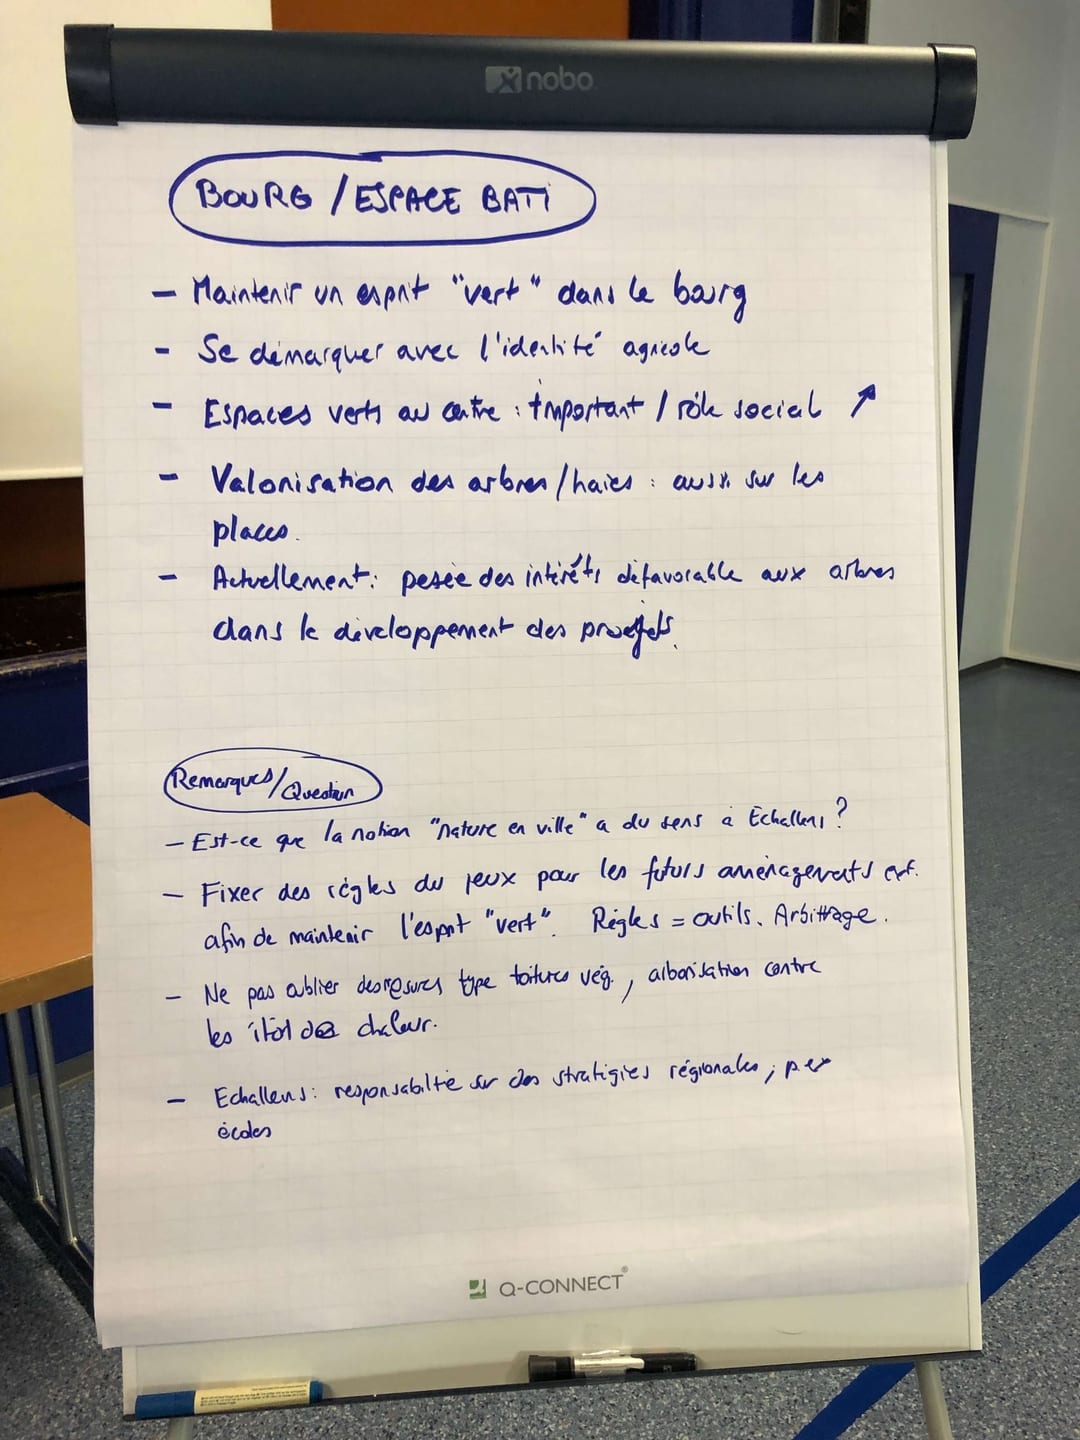 nobo
BOURG / ESPACE BATI
- Maintenir un esprit "vert" dans le bourg
- Se démarquer avec l'identité agricole
- Espaces verts au centre : important / rôle social ↗
- Valorisation des arbres/haies : aussi sur les
places.
- Actuellement : pesée des intérêts défavorable aux arbres
dans le développement des projets.
Remarques/Question
- Est-ce que la notion "nature en ville" a du sens à Echallens ?
- Fixer des règles du jeux pour les futurs aménagements ext.
afin de maintenir l'esprit "vert". Règles = outils. Arbitrage.
- Ne pas oublier des mesures type toitures vég., arborisation contre
les îlot de chaleur.
- Echallens : responsabilité sur des stratégies régionales ; p ex
écoles
Q-CONNECT®